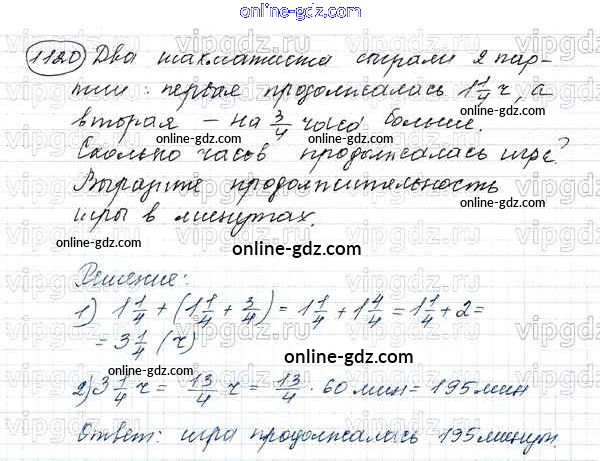 online-gdz.com
1120 Два шахматиста сыграли 2 пар-
тии: первая продолжалась 1 1/4 ч, а
вторая – на 3/4 часа больше.
online-gdz.com
Сколько часов продолжалась игра?
Выразите продолжительность
игры в минутах.
online-gdz.com
online-gdz.com
Решение:
1) 1 1/4 + (1 1/4 + 3/4) = 1 1/4 + 1 4/4 = 1 1/4 + 2 =
= 3 1/4 (ч)
online-gdz.com
2) 3 1/4 ч = 13/4 ч = 13/4 · 60 мин = 195 мин
online-gdz.com
Ответ: игра продолжалась 195 минут.
online-gdz.com